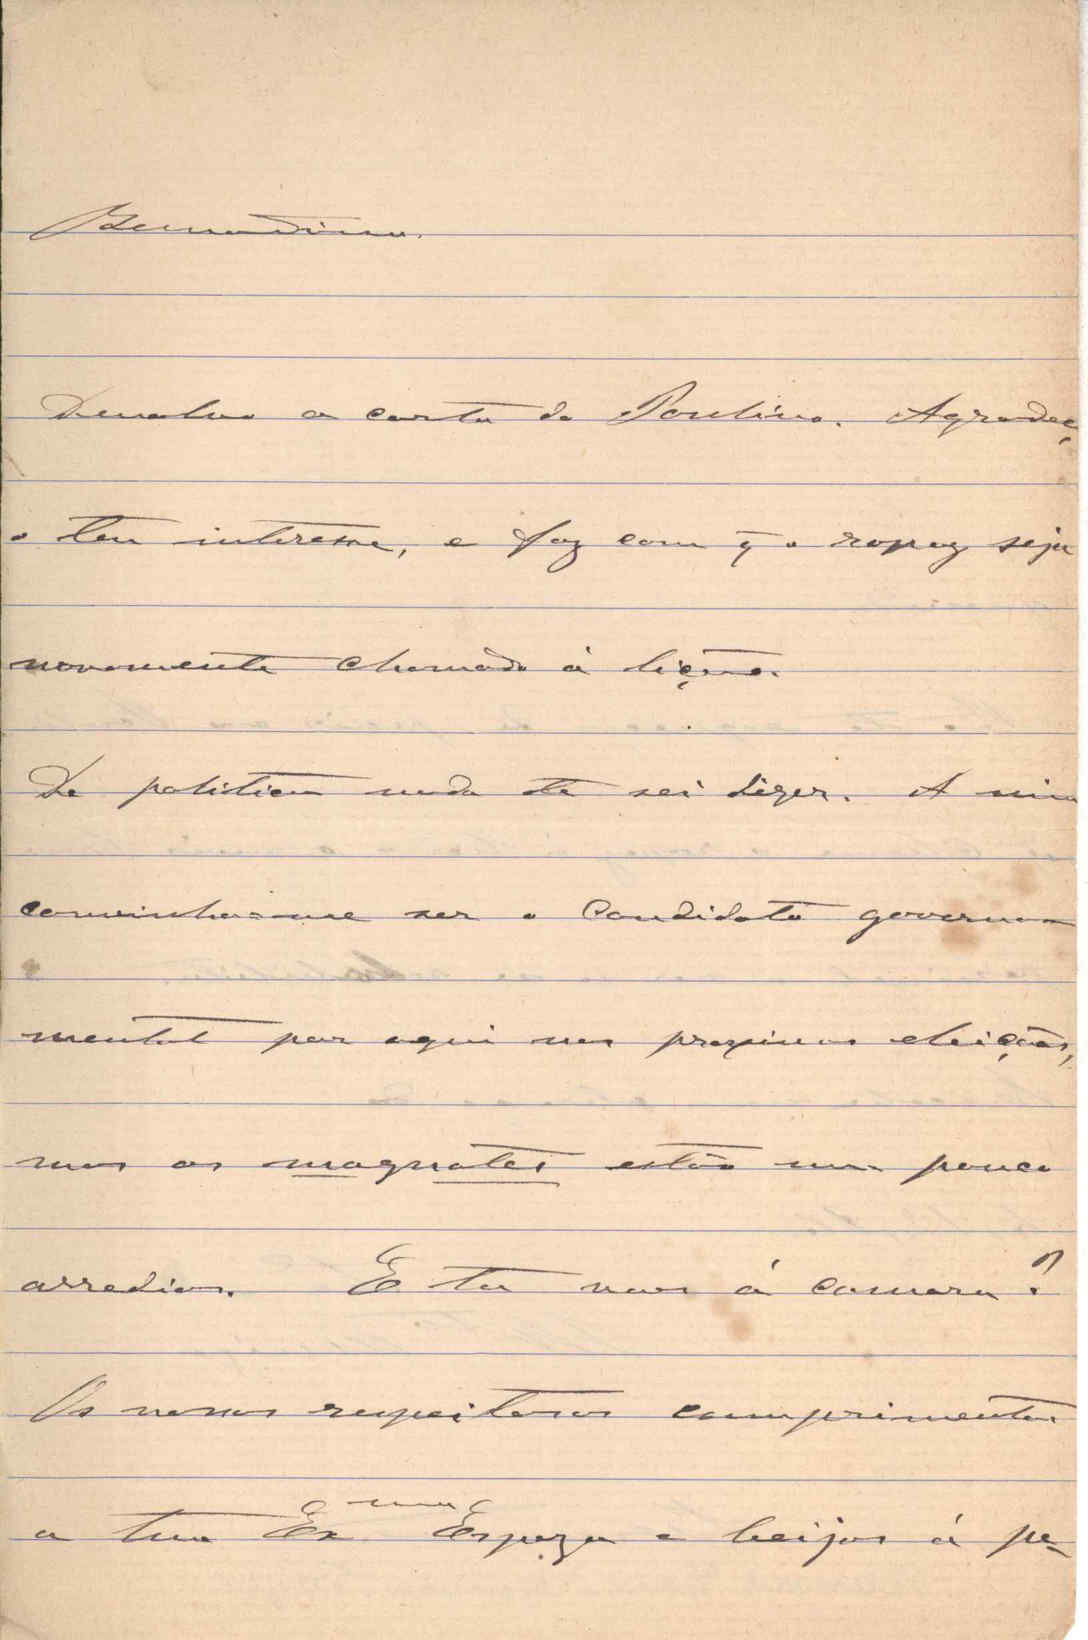 Bernardino.
Devolvo a carta do Paulino. Agradeç
o teu interesse, e faz com q̃ o rapaz seja
novamente chamado á lição.
De politica nada te sei dizer. A mim
convinha-me ser o candidato governa-
mental por aqui nas proximas eleições,
mas os magnates estão um pouco
arredios. E tu vaes á camara?
Os nossos respeitosos comprimentos
a tua Exma Espoza e beijos á pe-